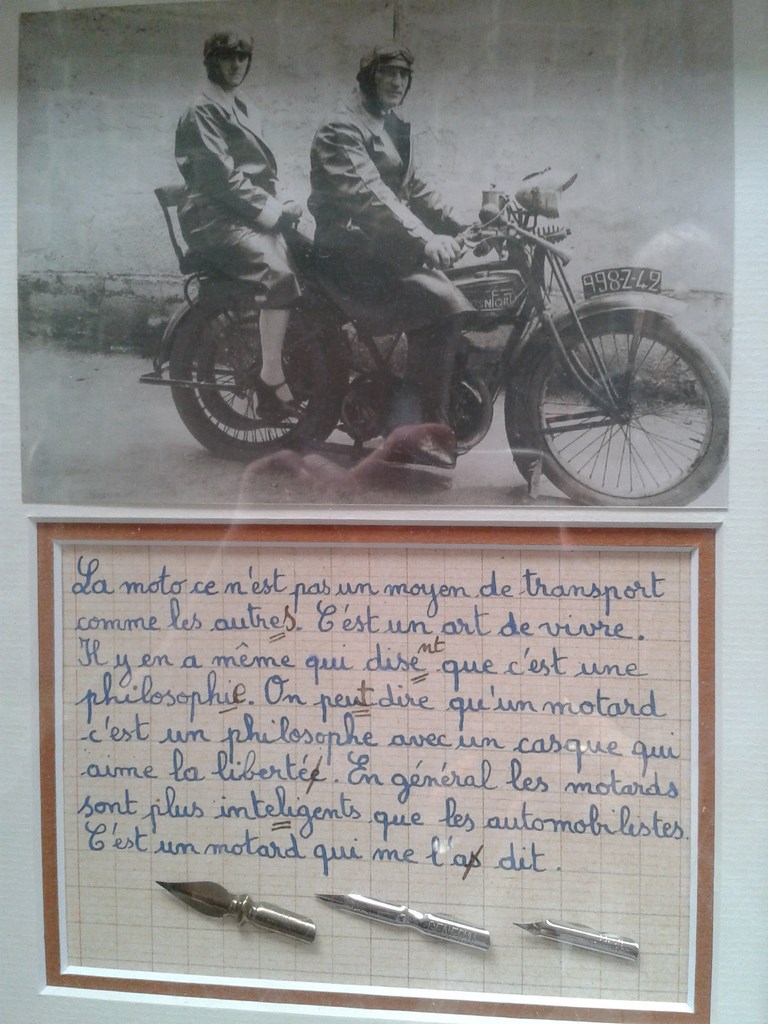 9982-42
La moto ce n'est pas un moyen de transport
comme les autres. C'est un art de vivre.
Il y en a même qui disent que c'est une
philosophie. On peut dire qu'un motard
c'est un philosophe avec un casque qui
aime la libertée. En général les motards
sont plus inteligents que les automobilistes.
C'est un motard qui me l'as dit.